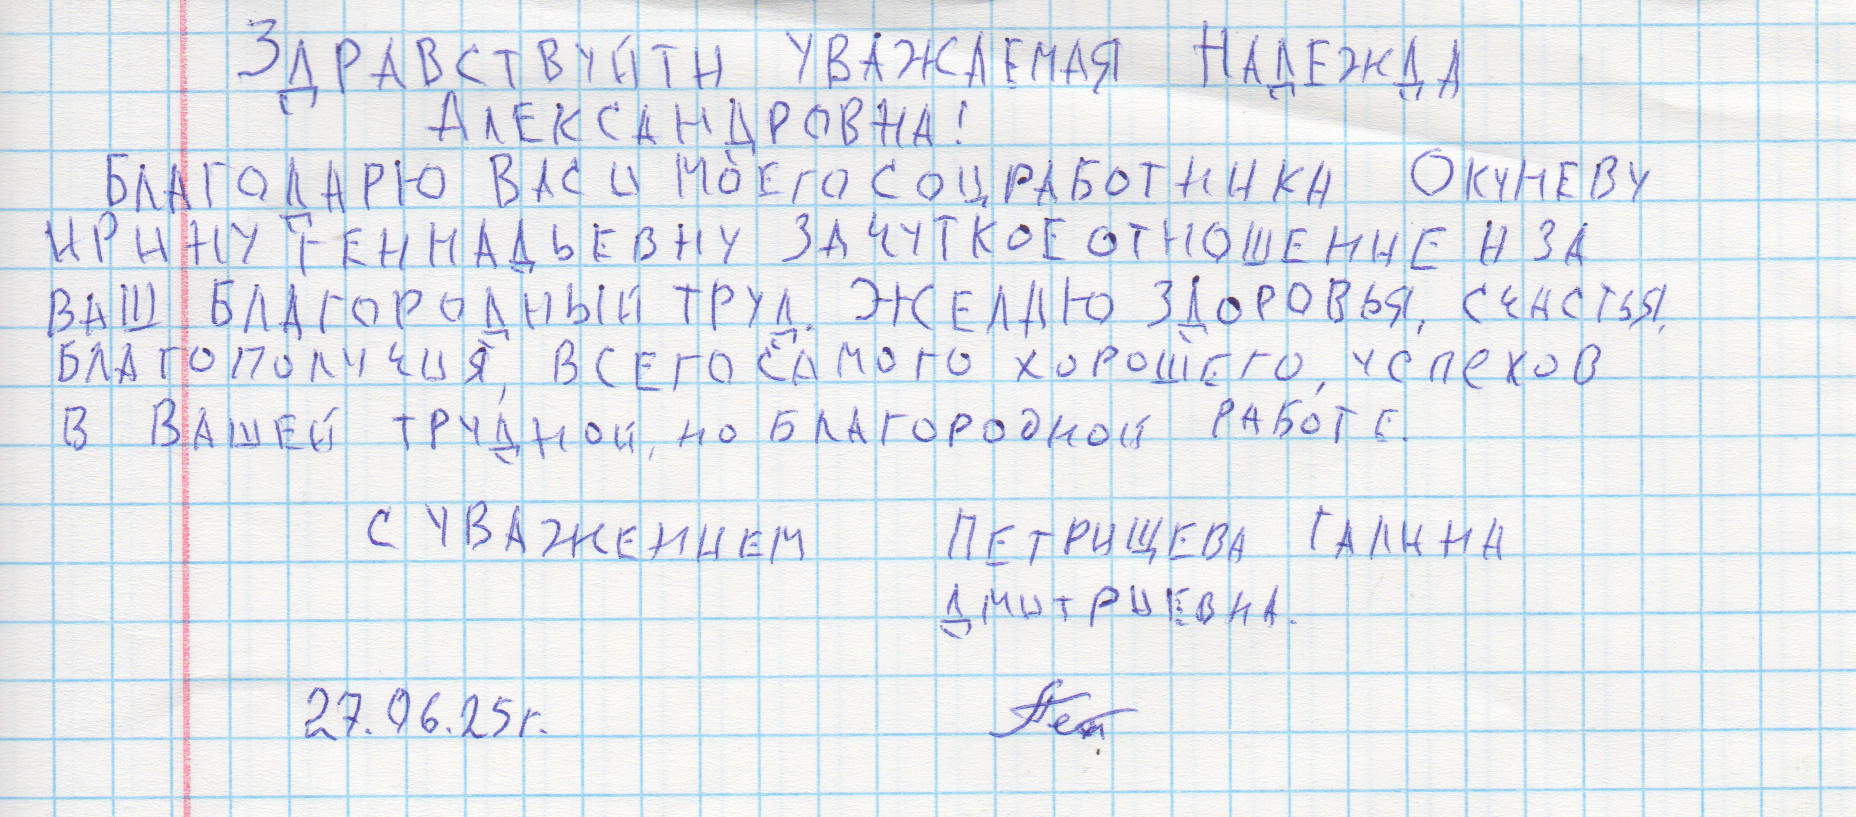 ЗДРАВСТВУЙТИ УВАЖАЕМАЯ НАДЕЖДА
АЛЕКСАНДРОВНА!
БЛАГОДАРЮ ВАС И МОЕГО СОЦРАБОТНИКА ОКУНЕВУ
ИРИНУ ГЕННАДЬЕВНУ ЗА ЧУТКОЕ ОТНОШЕНИЕ И ЗА
ВАШ БЛАГОРОДНЫЙ ТРУД. ЖЕЛАЮ ЗДОРОВЬЯ, СЧАСТЬЯ,
БЛАГОПОЛУЧИЯ, ВСЕГО САМОГО ХОРОШЕГО, УСПЕХОВ
В ВАШЕЙ ТРУДНОЙ, НО БЛАГОРОДНОЙ РАБОТЕ.
С УВАЖЕНИЕМ ПЕТРИЩЕВА ГАЛИНА
ДМИТРИЕВНА.
27.06.25г.